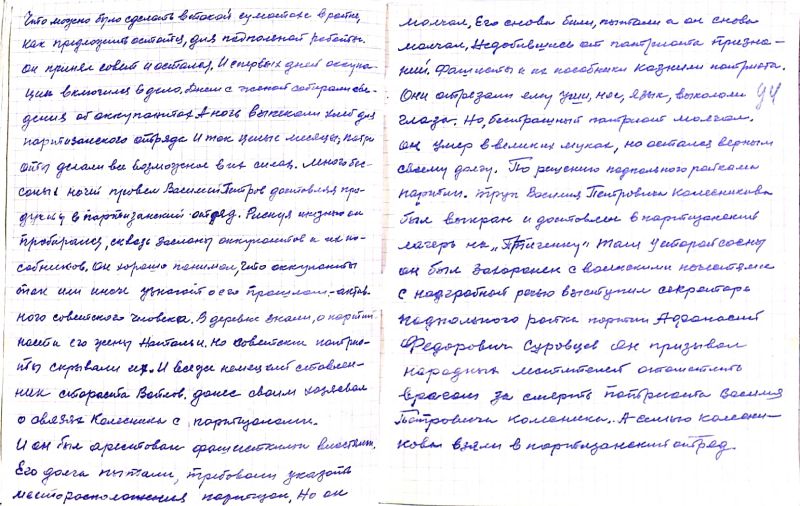 Что можно было сделать в такой сумотохе в ротке,
как предложить остатся, для подпольной работы.
Он принял совет и остался, И с первых дней оккупа-
ции включился в дело. Днем с женой собирали све-
дения об оккупантах А ночь выпекали хлеб для
партизанского отряда И так целые месяцы, патри
оты делали все возможное в их силах. Много бес-
соных ночей провел Василий Петров доставляя про-
дукты в партизанский отряд. Рискуя жизнью он
пробирался, сквозь заслоны оккупантов и их по-
собников. Он хорошо понимал, что оккупанты
так или иначе узнают о его прошлом - актив-
ного советского человека. В деревне знали, о партий
ности его жены Натальи. Но советские патрио-
ты скрывали их. И все же немецкий ставлен-
ник староста донес своим хозяевам
о связях Колесника с партизанами.
И он был арестован фашисткими властями.
Его долго пытали, требовали указать
месторасположения партизан, Но он
молчал, Его снова били, пытали а он снова
молчал. Недобившись от патриота призна-
ний. Фашисты и их пособники казнили патриота.
Они отрезали ему уши, нос, язык, выкололи
глаза. Но, бестрашный патриот молчал.
Он умер в великих муках, но остался верным
своему долгу. По решению подпольного райкома
партии. Труп Василия Петровича Колесникова
был выкран и доставлен в партизанский
лагерь на Там у старой сосны
он был захоронен с воинскими почестями
с надгробной речью выступил секретарь
подпольного рвтка партии Афанасий
Федорович Суровцев Он призывал
народных мстителей отомстить
врагам за смерть патриота Василия
Петровича А семью колесни-
кова взяли в партизанский отряд